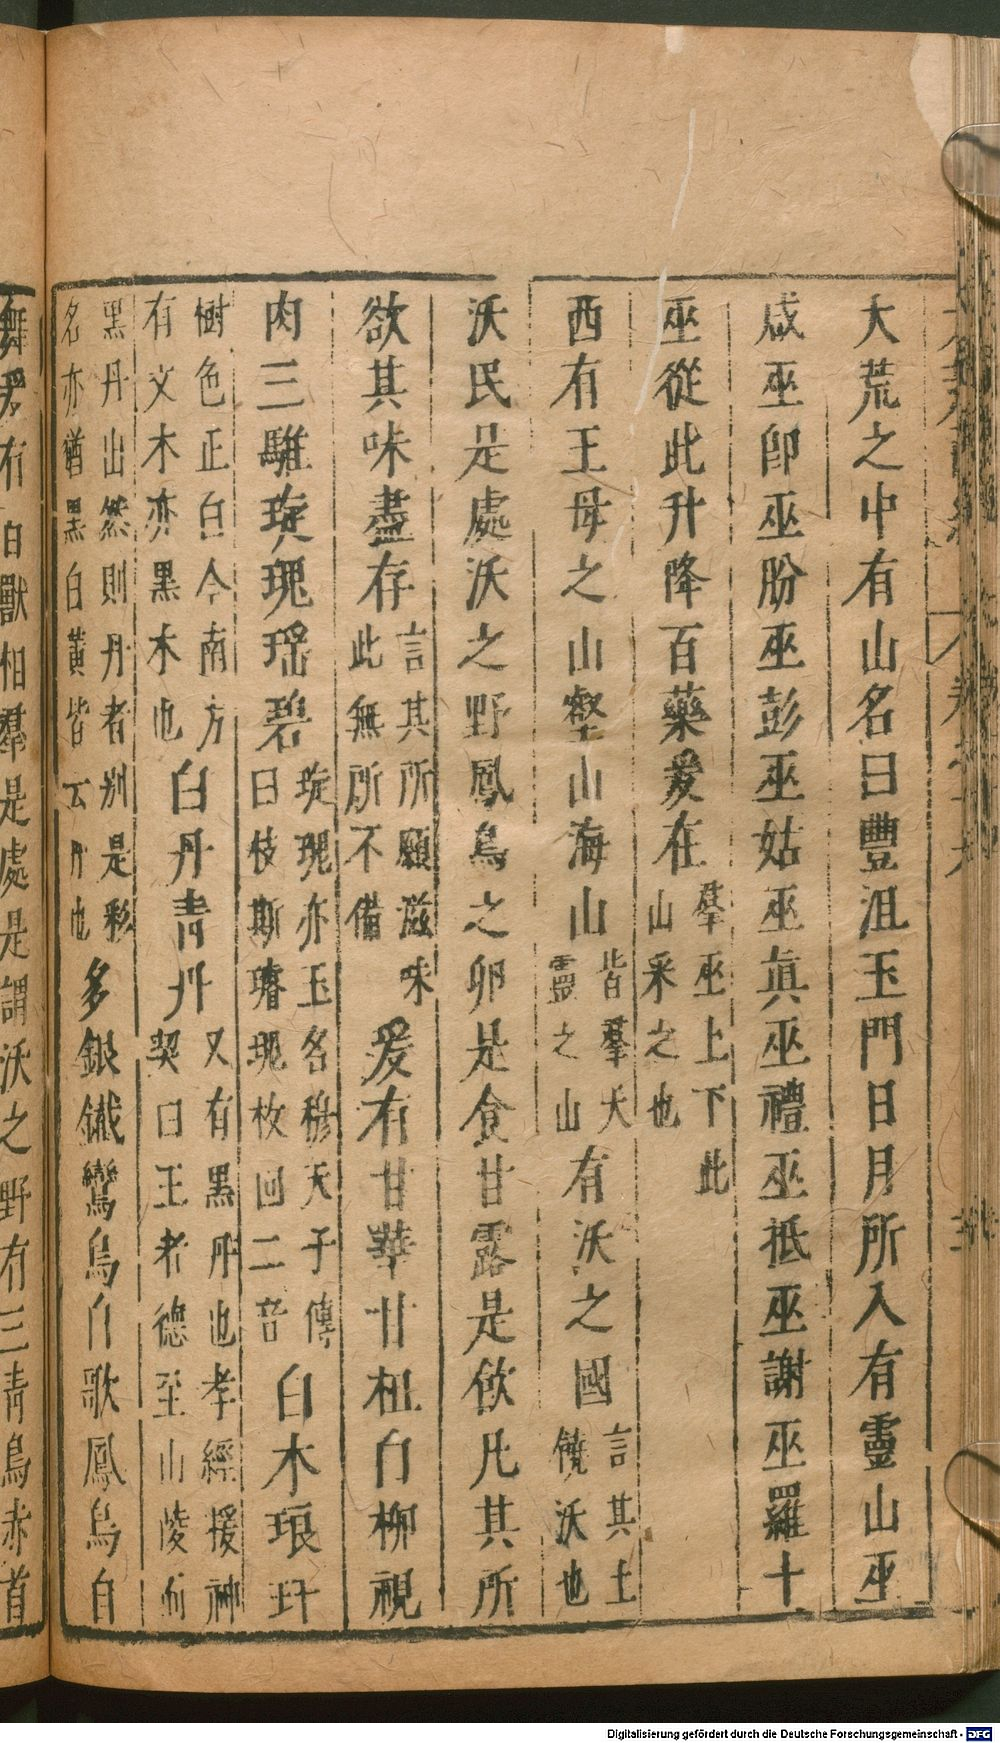 大荒之中有山名曰豐沮玉門日月所入有靈山巫
咸巫卽巫肦巫彭巫姑巫真巫禮巫抵巫謝巫羅十
巫從此升降百藥爰在
羣巫上下此
山采之也
西有王母之山壑山海山
皆羣大
靈之山
有沃之國
言其土
饒沃也
沃民是處沃之野鳳鳥之卵是食甘露是飲凡其所
欲其味盡存
言其所願滋味
此無所不備
爰有甘華甘柤白柳視
肉三騅琁瑰瑤碧
琁瑰亦玉名穆天子傳
曰枝斯璿瑰枚回二音
白木琅玕
樹色正白今南方
有文木亦黑木也
白丹青丹
又有黑丹也孝經援神
契曰王者德至山陵而
黑丹出然則丹者别是彩
名亦猶黑白黃皆云丹也
多銀鐵鸞鳥自歌鳳鳥自
舞爰有百獸相羣是處是謂沃之野有三青鳥赤首
Digitalisierung gefördert durch die Deutsche Forschungsgemeinschaft - DFG